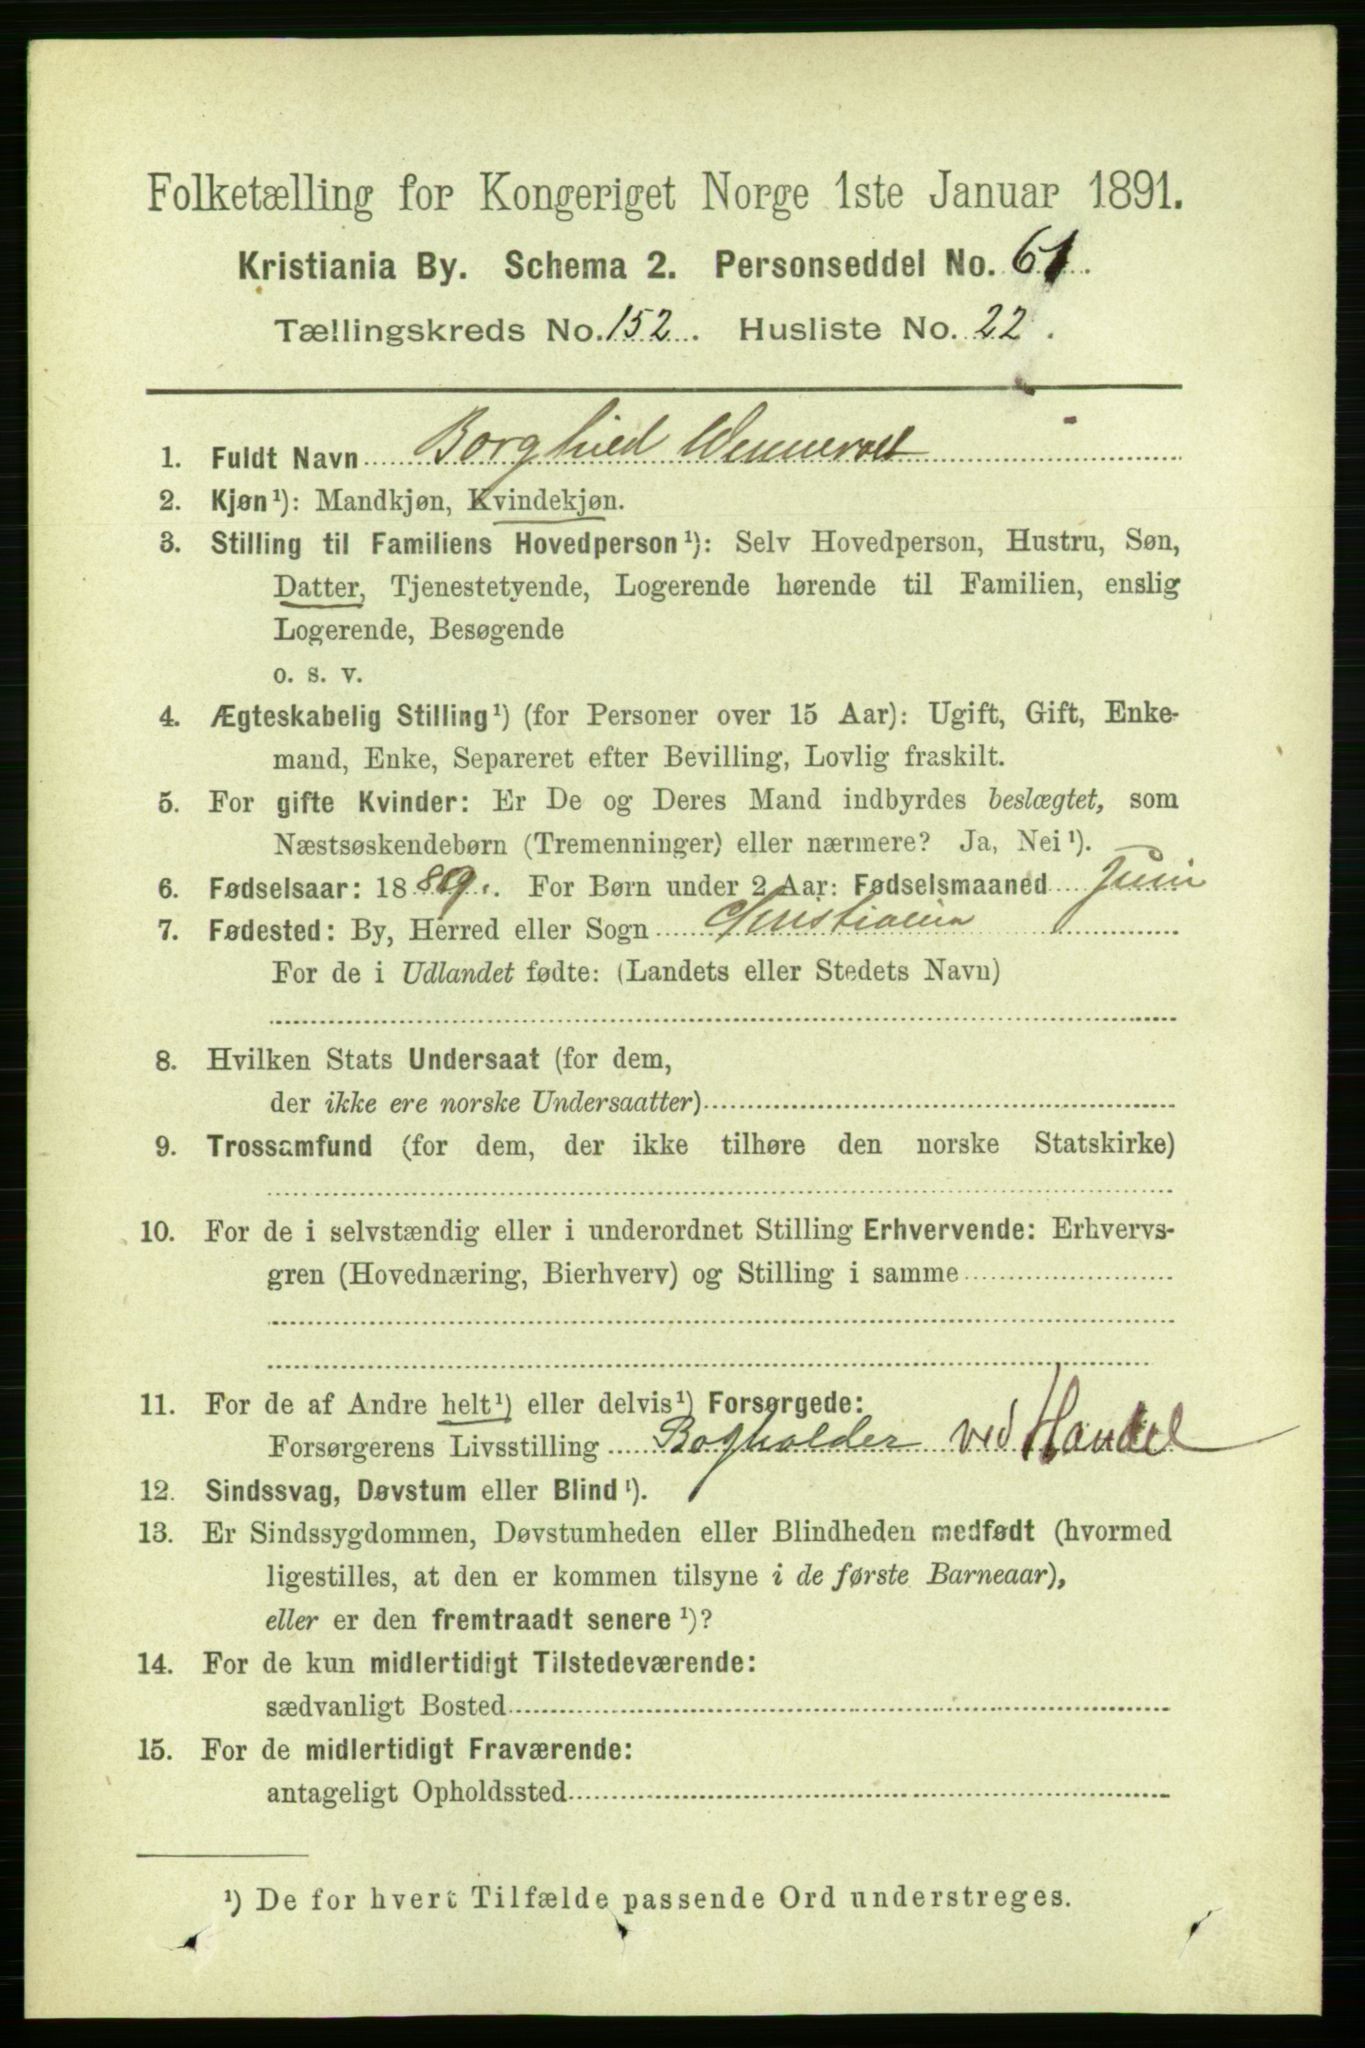 Folketælling for Kongeriget Norge 1ste Januar 1891.
Kristiania By. Schema 2. Personseddel No. 61.
Tællingskreds No. 152. Husliste No. 22.
1. Fuldt Navn Borghild
2. Kjøn¹): Mandkjøn, Kvindekjøn.
3. Stilling til Familiens Hovedperson¹): Selv Hovedperson, Hustru, Søn,
Datter, Tjenestetyende, Logerende hørende til Familien, enslig
Logerende, Besøgende
o. s. v.
4. Ægteskabelig Stilling¹) (for Personer over 15 Aar): Ugift, Gift, Enke-
mand, Enke, Separeret efter Bevilling, Lovlig fraskilt.
5. For gifte Kvinder: Er De og Deres Mand indbyrdes beslægtet, som
Næstsøskendebørn (Tremenninger) eller nærmere? Ja, Nei¹).
6. Fødselsaar: 1889. For Børn under 2 Aar: Fødselsmaaned Juni
7. Fødested: By, Herred eller Sogn Christiania
For de i Udlandet fødte: (Landets eller Stedets Navn)
8. Hvilken Stats Undersaat (for dem,
der ikke ere norske Undersaatter)
9. Trossamfund (for dem, der ikke tilhøre den norske Statskirke)
10. For de i selvstændig eller i underordnet Stilling Erhvervende: Erhvervs-
gren (Hovednæring, Bierhverv) og Stilling i samme
11. For de af Andre helt¹) eller delvis¹) Forsørgede:
Forsørgerens Livsstilling Bogholder ved Handel
12. Sindssvag, Døvstum eller Blind¹).
13. Er Sindssygdommen, Døvstumheden eller Blindheden medfødt (hvormed
ligestilles, at den er kommen tilsyne i de første Barneaar),
eller er den fremtraadt senere¹)?
14. For de kun midlertidigt Tilstedeværende:
sædvanligt Bosted
15. For de midlertidigt Fraværende:
antageligt Opholdssted
¹) De for hvert Tilfælde passende Ord understreges.